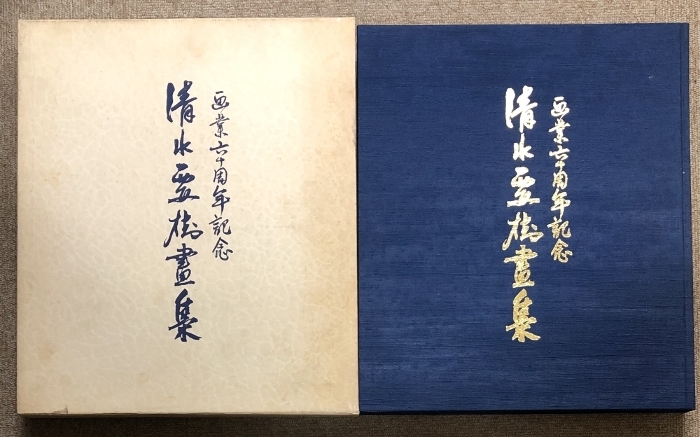 画業六十周年記念
清水要樹畫集
画業六十周年記念
清水要樹畫集